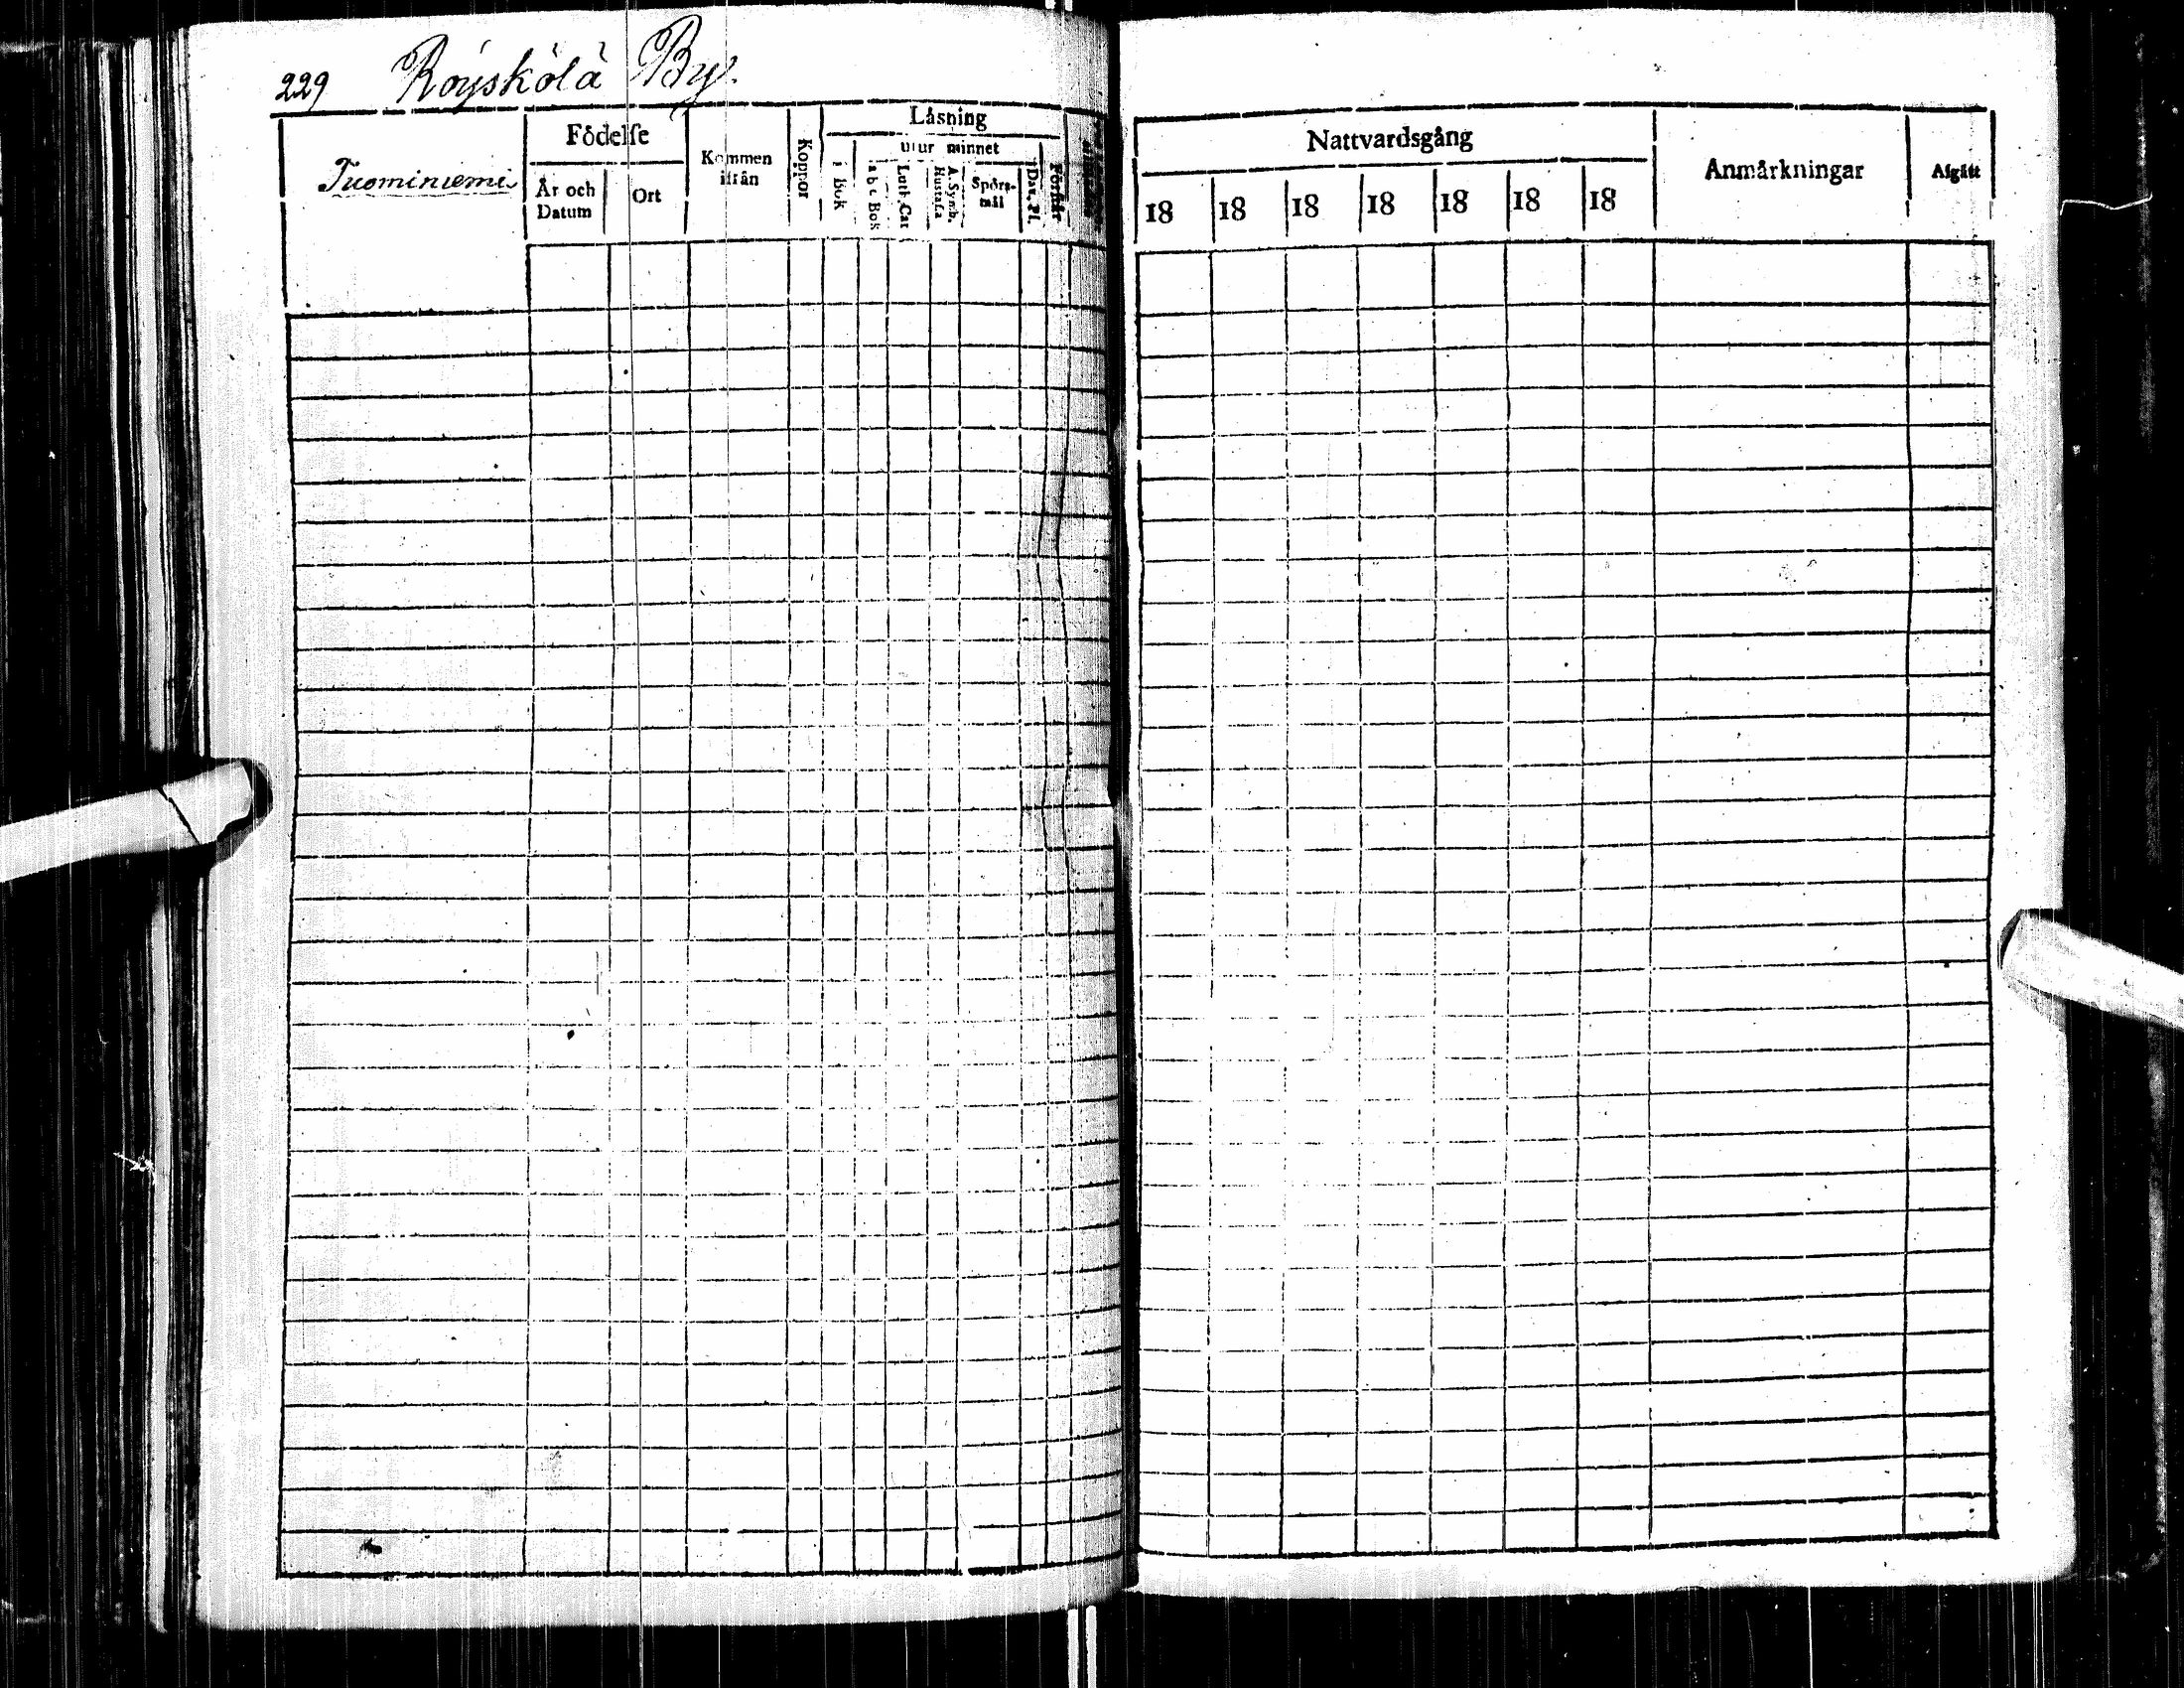 229 Röyskölä By.
Tuominiemi
Födelſe
År och Datum
Ort
Kommen ifrån
Koppor
Läsning
i Bok
utur minnet
a b c Bok
Luth. Cat
A. Symb. Hustafla
Spörs-mål
Dav. Pſ.
Förſtår
Nattvardsgång
18 18 18 18 18 18 18
Anmärkningar
Afgått